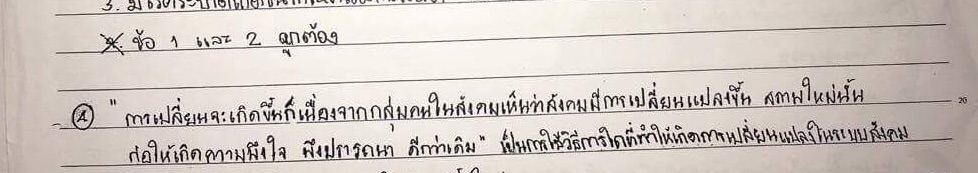 3. มี
4. ข้อ 1 และ 2 ถูกต้อง
④ "การเปลี่ยนจะเกิดขึ้นก็เนื่องจากกลุ่มคนในสังคมเห็นว่าสังคมมีการเปลี่ยนแปลงขึ้น สภาพใหม่นั้น
ก่อให้เกิดความพึงใจ พึงปรารถนา ดีกว่าเดิม" เป็นการใช้วิธีการใดที่ทำให้เกิดการเปลี่ยนแปลงในระบบสังคม
20